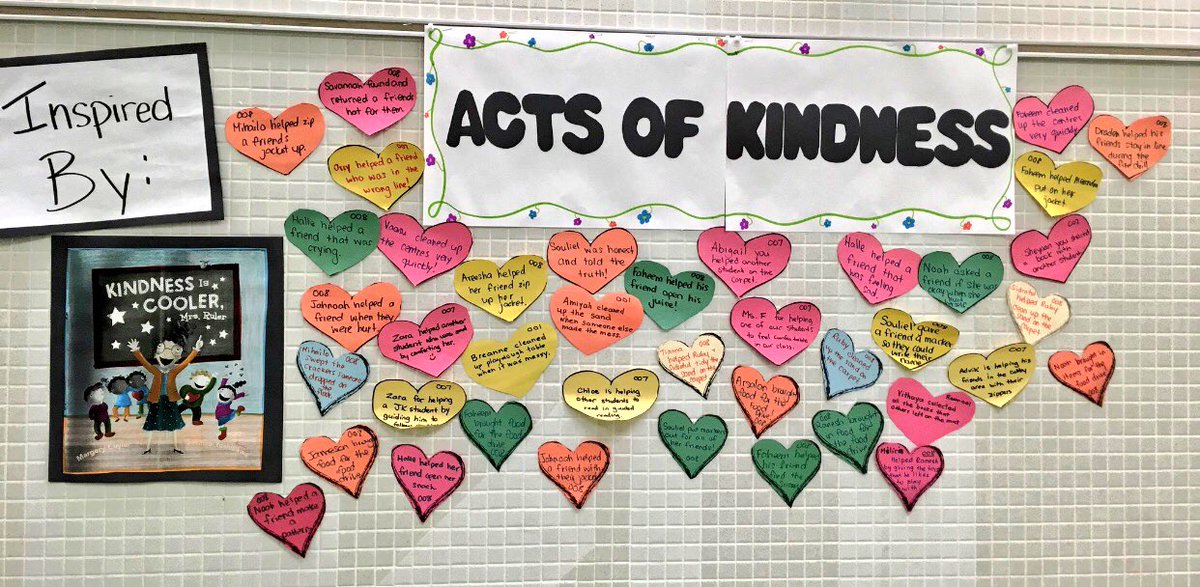 Inspired
By:
ACTS OF KINDNESS
KINDNESS IS
COOLER,
Mrs. Ruler
Margery
008
Savannah found and
returned a friends
hat for them.
008
Mihailo helped zip
a friend's
jacket up.
007
Orry helped a friend
who was in the
wrong line!
008
Faheem cleaned
up the centres
very quickly!
helped his
friends stay in line
during the
fire drill
008
Faheem helped
put on her
jacket
008
Halle helped a
friend that was
crying.
cleaned up
the centres very
quickly!
008
Areesha helped
her friend zip
up her
jacket.
Souliel was honest
and told the
truth!
008
Faheem helped his
friend open his
juice!
007
Abigail you
helped another
student on the
carpet.
Halle helped a
friend that
was feeling
sad.
008
Noah asked a
friend if she was
okay when she
got hurt
007
you shared
book with
another student
008
Jahnoah helped a
friend when they
were hurt.
007
Zara helped another
student who was sad
by comforting her.
001
Breanne cleaned
up playdough table
when it was messy.
001
Amiyah cleaned
up the sand
when someone else
made the mess.
008
helped Ruby
tidy the
007
Ms. E for helping
one of our students
to feel comfortable
in our class.
Ruby cleaned
up the
carpet
Souliel gave
a friend a marker
so they could
write their
name
007
Advik is helping his
friends in the cubby
area with their
zippers
helped Ruby
clean up the
on the
Noah brought in
items for the
food drive
008
Mihailo
swept the
crackers
dropped on
the
floor
007
Zara for helping
a JK student by
guiding him to
007
Chloe is helping
other students to
read in guided
reading
Arsalan brought
food for the
food
selected
all the books that
others left on the
Faheem
brought food
for the food
drive
008
Souliel put markers
out for all of
her friends!
008
008
brought
in food for
the food
drive
008
Jameson brought
food for the
food
drive
Halle helped her
friend open her
snack.
008
Jahnoah helped
a friend with
their jacket
008
Faheem helped
his friend
find the
008
Melina
helped
by giving the
he likes
to play
with
008
Noah helped a
friend make
a
pattern